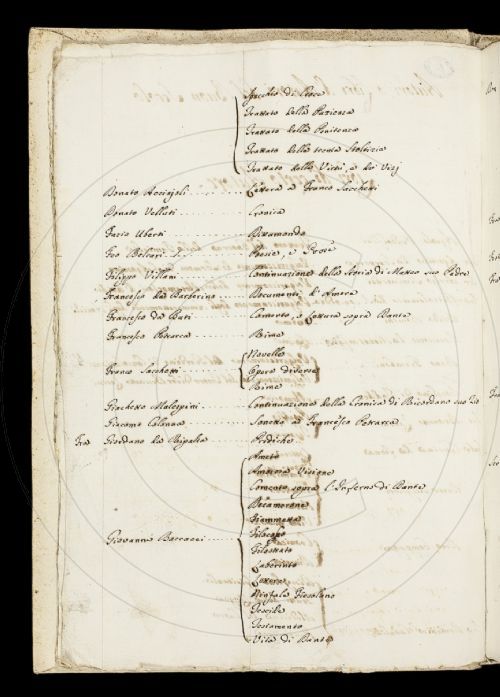 Specchio di Croce
Trattato della Pazienza
Trattato della Penitenza
Trattato della trenta Stoltizie
Trattato delle Virtù, e de' Vizj
Donato Acciajoli Lettera a Franco Sacchetti
Donato Velluti Cronica
Fazio Uberti Dittamondo
Feo Belcari Poesie, e Prose
Filippo Villani Continuazione della Storia di Matteo suo Padre
Francesco da Barberino Documenti d'Amore
Francesco da Buti Comento, o Lettura sopra Dante
Francesco Petrarca Rime
Novelle
Franco Sacchetti Opere diverse
Rime
Giachetto Malespini Continuazione della Cronica di Ricordano suo Zio
Giacomo Colonna Sonetto a Francesco Petrarca
Fra Giordano da Ripalta Prediche
Ameto
Amorosa Visione
Comento sopra l'Inferno di Dante
Decamerone
Fiammetta
Filocopo
Giovanni Boccacci Filostrato
Laberinto
Lettere
Ninfale Fiesolano
Teseide
Testamento
Vita di Dante